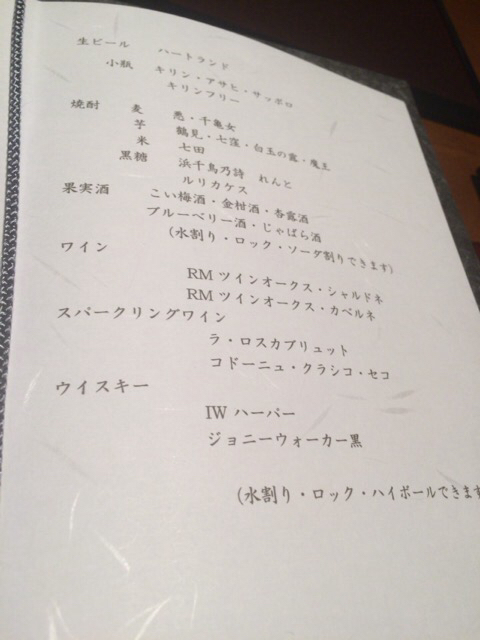 生ビール ハートランド
小瓶 キリン・アサヒ・サッポロ
キリンフリー
焼酎 麦 悉・千亀女
芋 鶴見・七窪・白玉の露・魔王
米 七田
黒糖 浜千鳥乃詩 れんと
ルリカケス
果実酒 こい梅酒・金柑酒・杏露酒
ブルーベリー酒・じゃばら酒
(水割り・ロック・ソーダ割りできます)
ワイン
RMツインオークス・シャルドネ
RMツインオークス・カベルネ
スパークリングワイン
ラ・ロスカブリュット
コドーニュ・クラシコ・セコ
ウイスキー
IW ハーパー
ジョニーウォーカー黒
(水割り・ロック・ハイボールできます